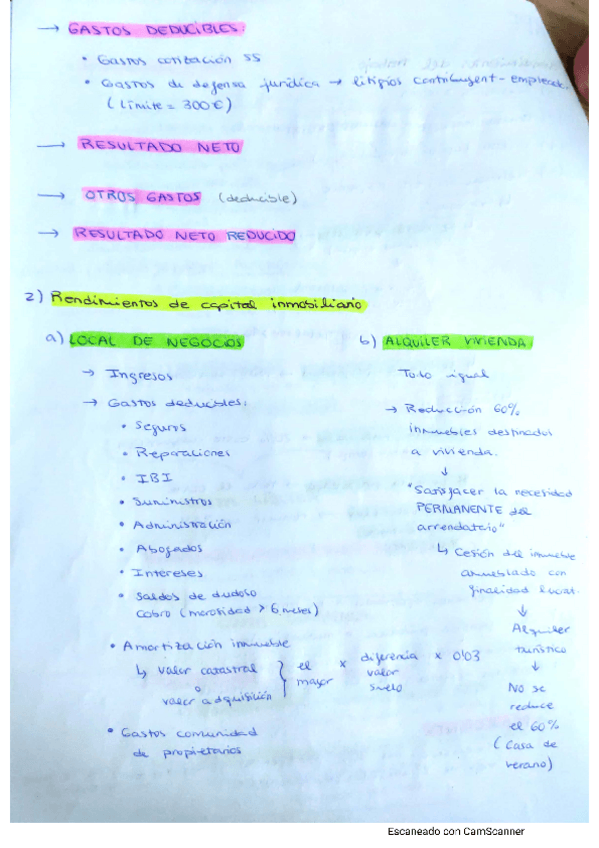 → GASTOS DEDUCIBLES:
• Gastos cotización SS
• Gastos de defensa jurídica → litigios contribuyent-emplead.
(Límite = 300€)
→ RESULTADO NETO
→ OTROS GASTOS (deducible)
→ RESULTADO NETO REDUCIDO
2) Rendimientos de capital inmobiliario
a) LOCAL DE NEGOCIOS
→ Ingresos
→ Gastos deducibles:
• Seguros
• Reparaciones
• IBI
• Suministros
• Administración
• Abogados
• Intereses
• Saldos de dudoso
cobro (morosidad > 6 meses)
• Amortización inmueble
↳ valor catastral
o
valor adquisición
} el
mayor
x diferencia
valor
suelo
x 0'03
• Gastos comunidad
de propietarios
b) ALQUILER VIVIENDA:
Todo igual
→ Reducción 60%
inmuebles destinados
a vivienda.
↓
"Satisfacer la necesidad
PERMANENTE del
arrendatario"
↳ Cesión del inmueble
amueblado con
finalidad lucrat.
↓
Alquiler
turístico
↓
No se
reduce
el 60%
(Casa de
verano)
Escaneado con CamScanner